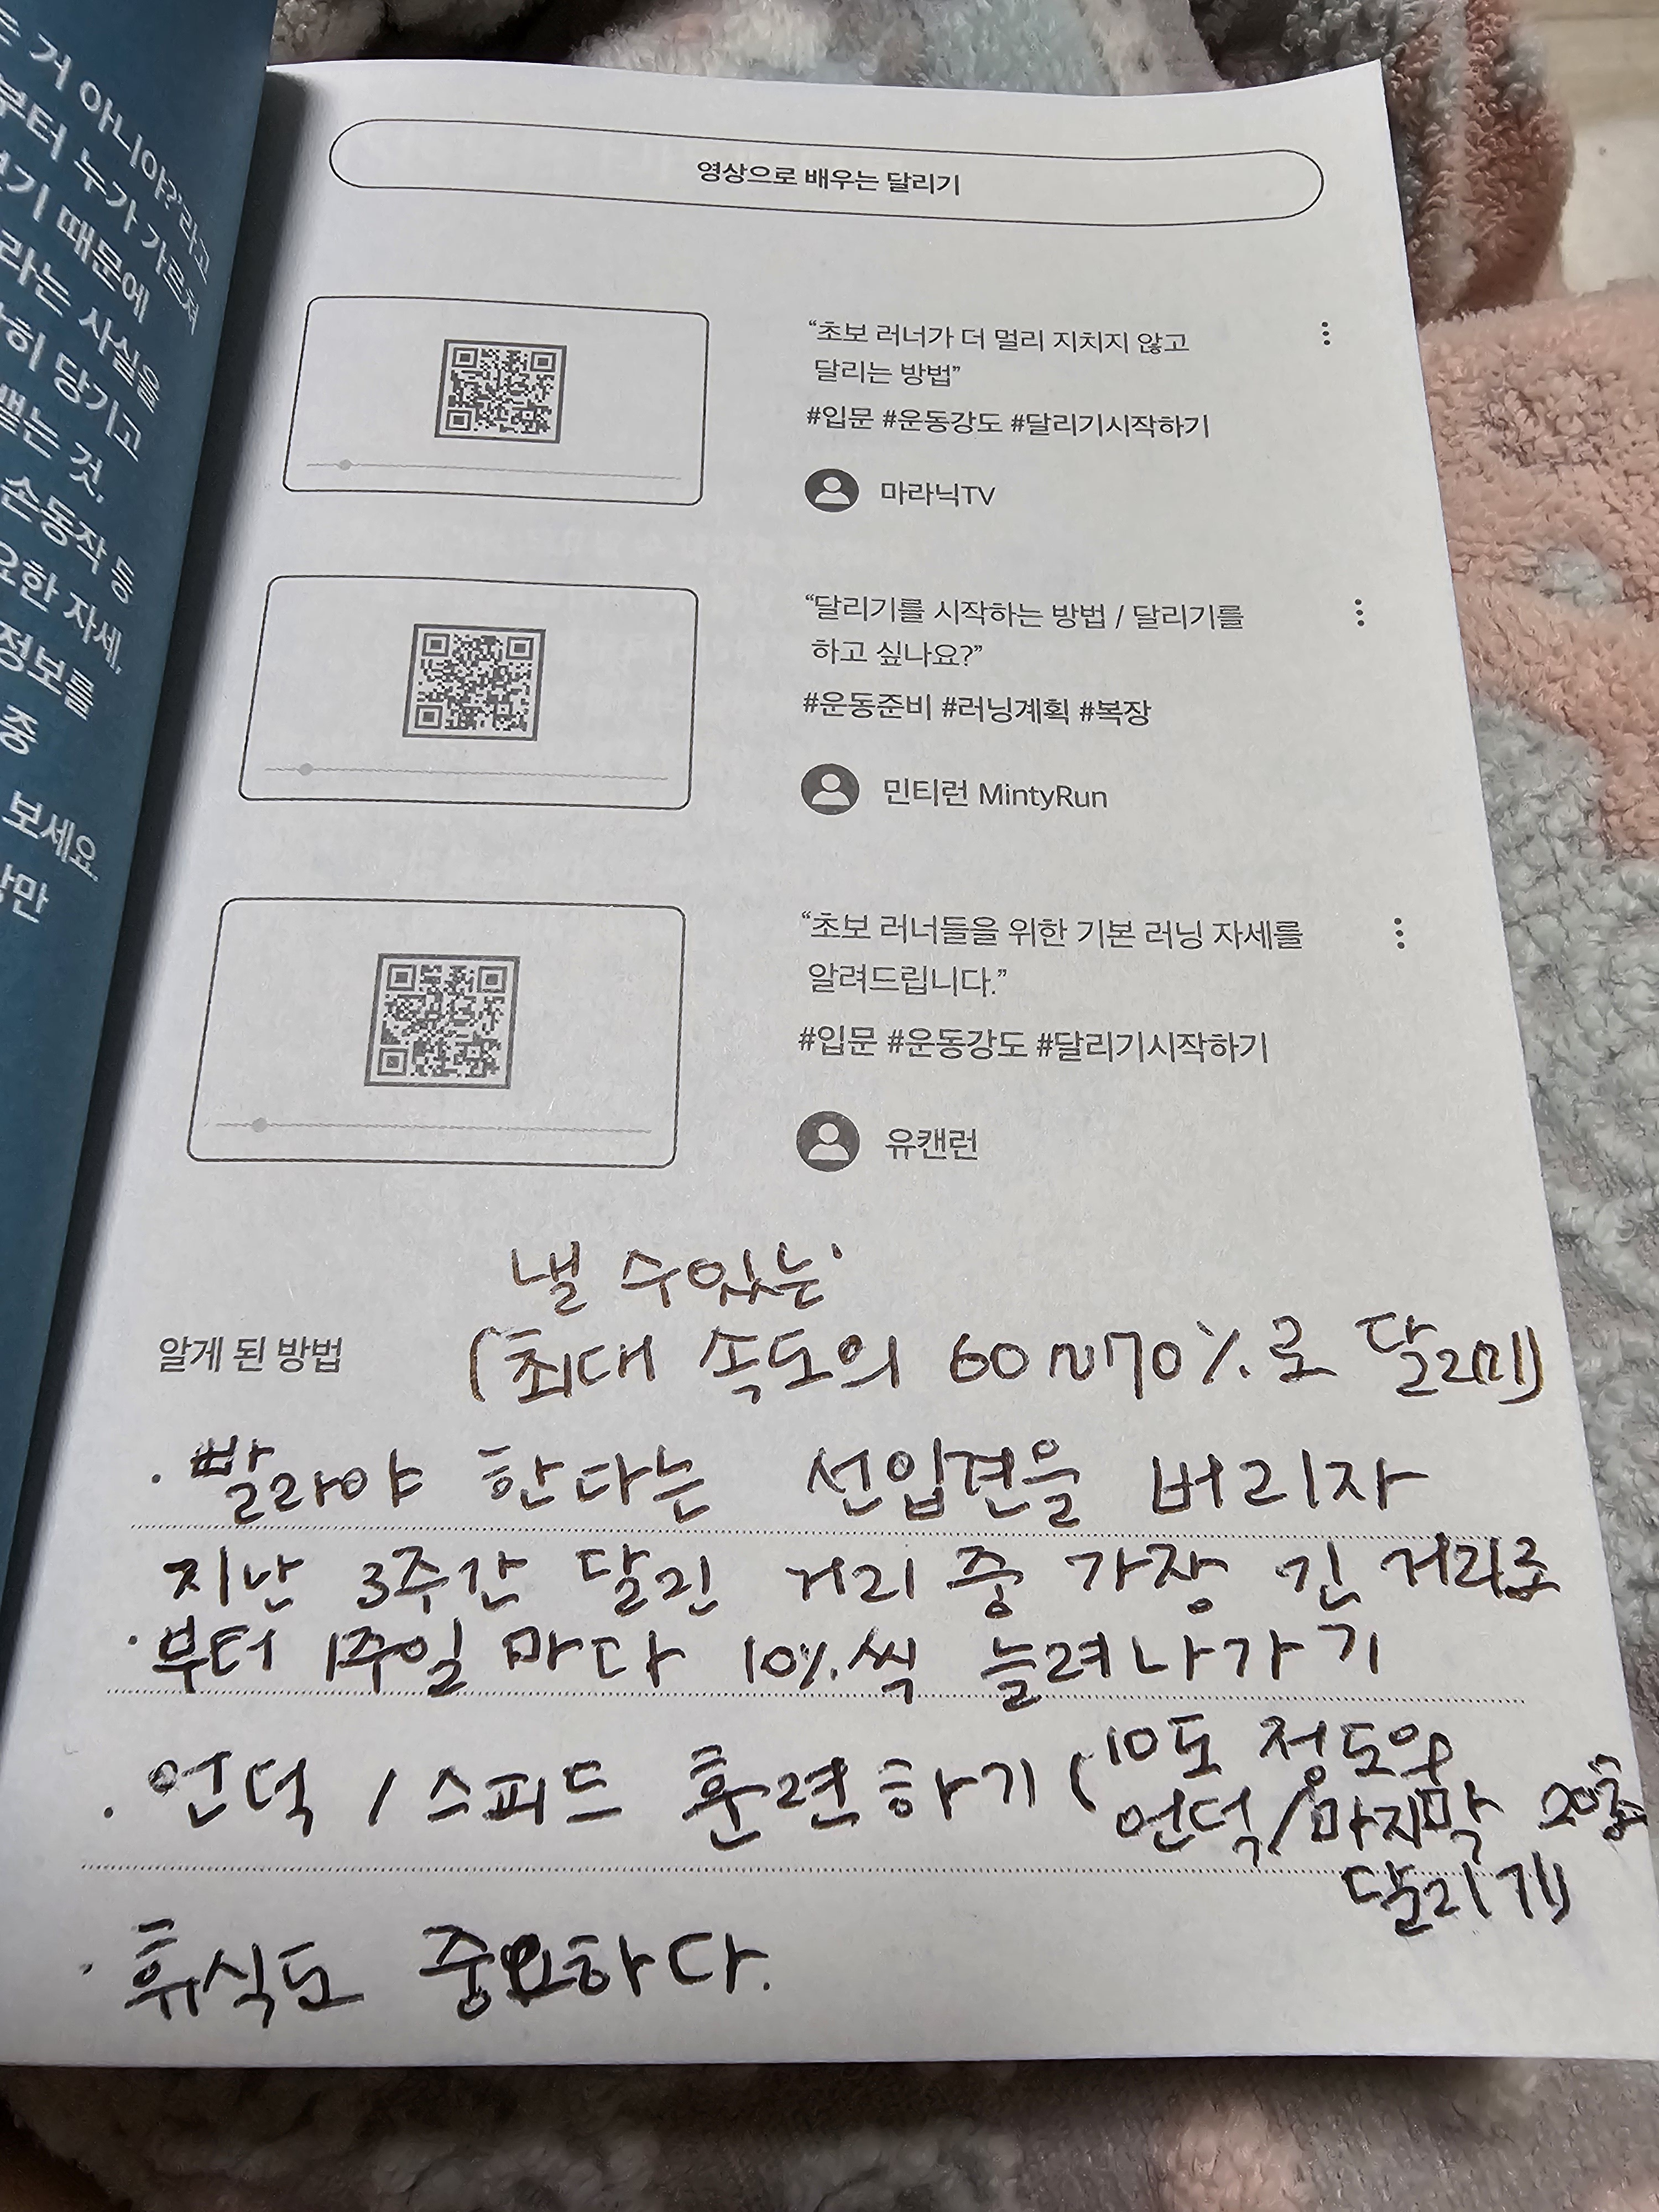 는 거 아니야?'라고
부터 누가 가르쳐
기 때문에
라는 사실을
히 당기고
빼는 것,
손동작 등
요한 자세,
정보를
중
보세요.
만
영상으로 배우는 달리기
“초보 러너가 더 멀리 지치지 않고
달리는 방법”
#입문 #운동강도 #달리기시작하기
마라닉TV
“달리기를 시작하는 방법 / 달리기를
하고 싶나요?”
#운동준비 #러닝계획 #복장
민티런 MintyRun
“초보 러너들을 위한 기본 러닝 자세를
알려드립니다.”
#입문 #운동강도 #달리기시작하기
유캔런
낼 수있는
알게 된 방법 (최대 속도의 60~70%로
· 빨라야 한다는 선입견을 버리자
지난 3주간 달린 거리 중 가장 긴 거리로
· 부터 1주일 마다 10%씩 늘려나가기
· 언덕 / 스피드 훈련하기 (10도 정도의
언덕/마지막
달리기)
· 휴식도 중요하다.